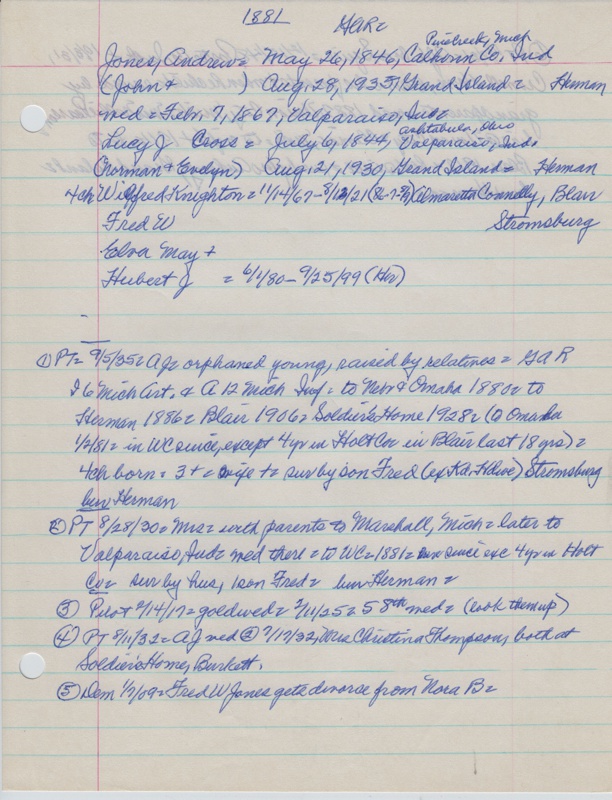 1881
GAR=
Pinecreek, Mich
Jones, Andrew = May 26, 1846, Calhoun Co, Ind
(John + ) Aug. 28, 1935, Grand Island = Herman
med = Febr. 7, 1867, Valparaiso, Ind=
Ashtabula, Ohio
Lucy J Cross = July 6, 1844, Valparaiso, Ind.
(Norman + Evelyn) Aug. 21, 1930, Grand Island = Herman
4ch Wilfred Knighton = 11/14/67 - Almaretta Connelly, Blair
Fred W Stromsburg
Elva May +
Hubert J = 6/1/80 - 9/25/99 (Her)
① PT= 9/5/35= AJ= orphaned young, raised by relatives = GAR
I 6 Mich Art. & A 12 Mich Inf = to Nebr & Omaha 1880= to
Herman 1886= Blair 1906= Soldier's Home 1928= (to Omaha
1/2/81= in WC since, except 4 yr in Holt Co= in Blair last 18 yrs)=
4ch born = 3+= wife += sur by son Fred Stromsburg
bur Herman
② PT 8/28/30= Mrs= with parents to Marshall, Mich= later to
Valparaiso, Ind= med there = to WC=1881= since exc 4 yr in Holt
Co= sur by hus, 1 son Fred= bur Herman =
③ Pilot 2/14/17= gold wed= 2/11/25= 58th wed= (look them up)
④ PT 8/11/32= AJ med @ 7/17/32, Mrs Christina Thompson, both at
Soldier's Home, Burkett.
⑤ Dem 1/7/09= Fred W Jones gets divorce from Nora B=